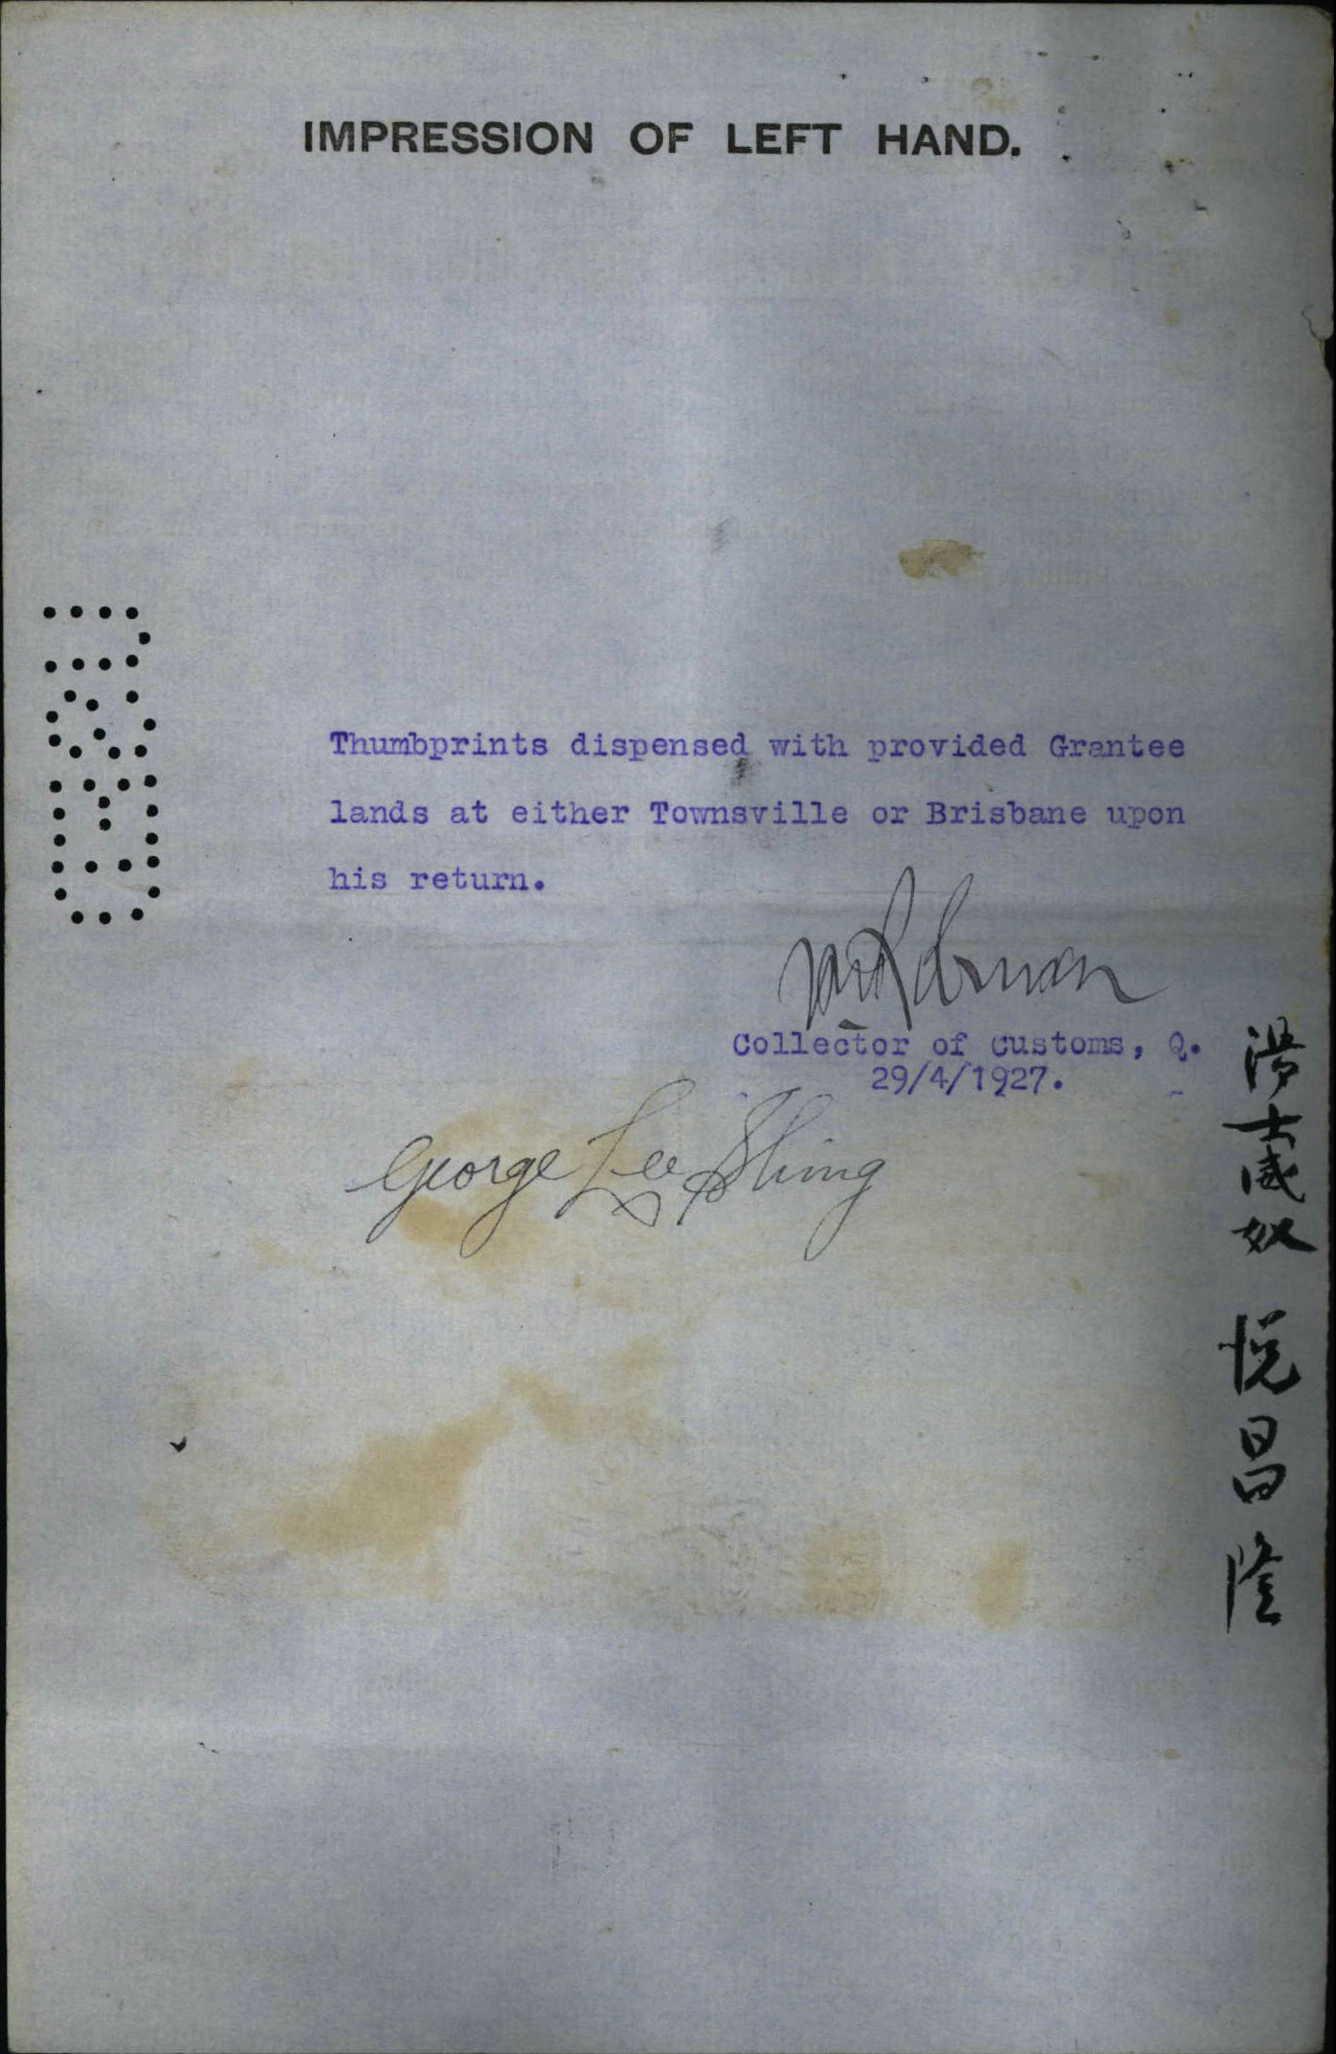 IMPRESSION OF LEFT HAND.
Thumbprints dispensed with provided Grantee
lands at either Townsville or Brisbane upon
his return.
Collector of Customs, Q.
29/4/1927.
George Lee Shing
湯士威奴 悦昌隆